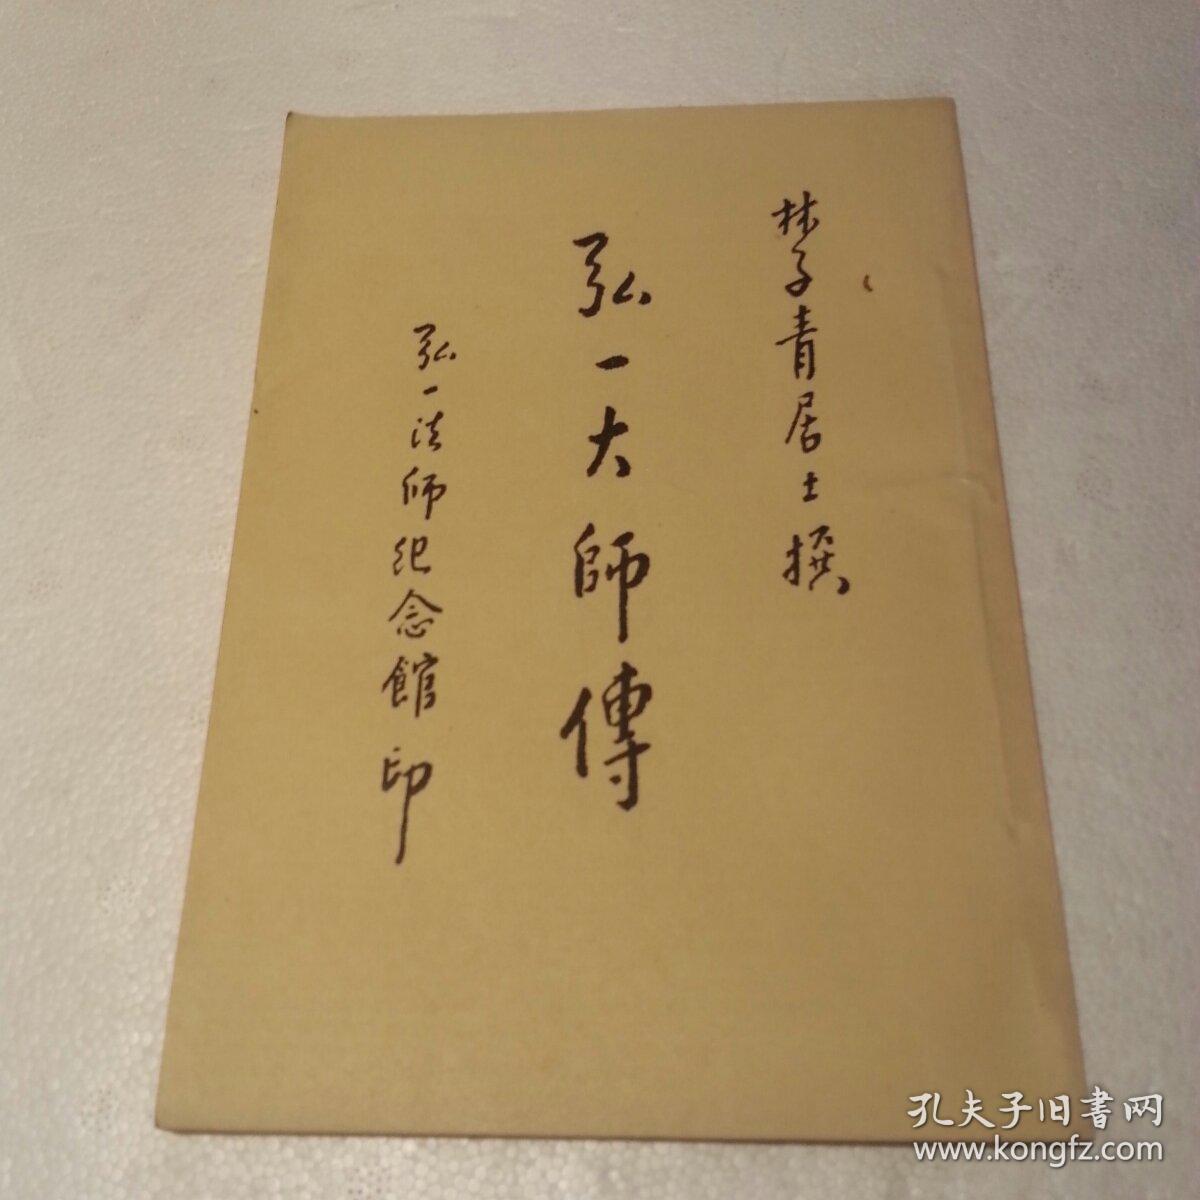 林子青居士撰
弘一大師傳
弘一法师纪念館印
孔夫子旧書网
www.kongfz.com